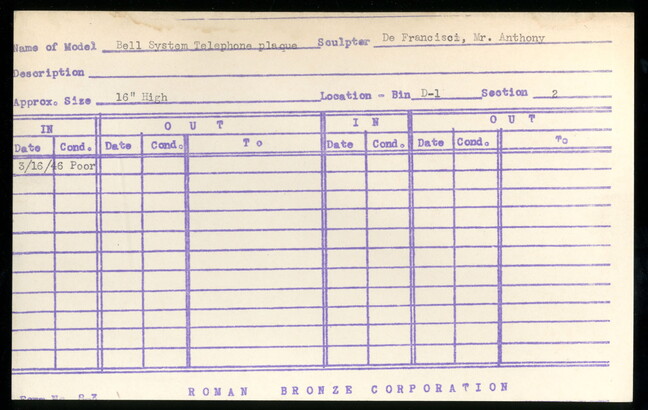 Name of Model Bell System Telephone plaque Sculptor De Francisci, Mr. Anthony
Description
Approx. Size 16" High Location - Bin D-1 Section 2
IN OUT IN OUT
Date Cond. Date Cond. To Date Cond. Date Cond. To
3/16/46 Poor
ROMAN BRONZE CORPORATION